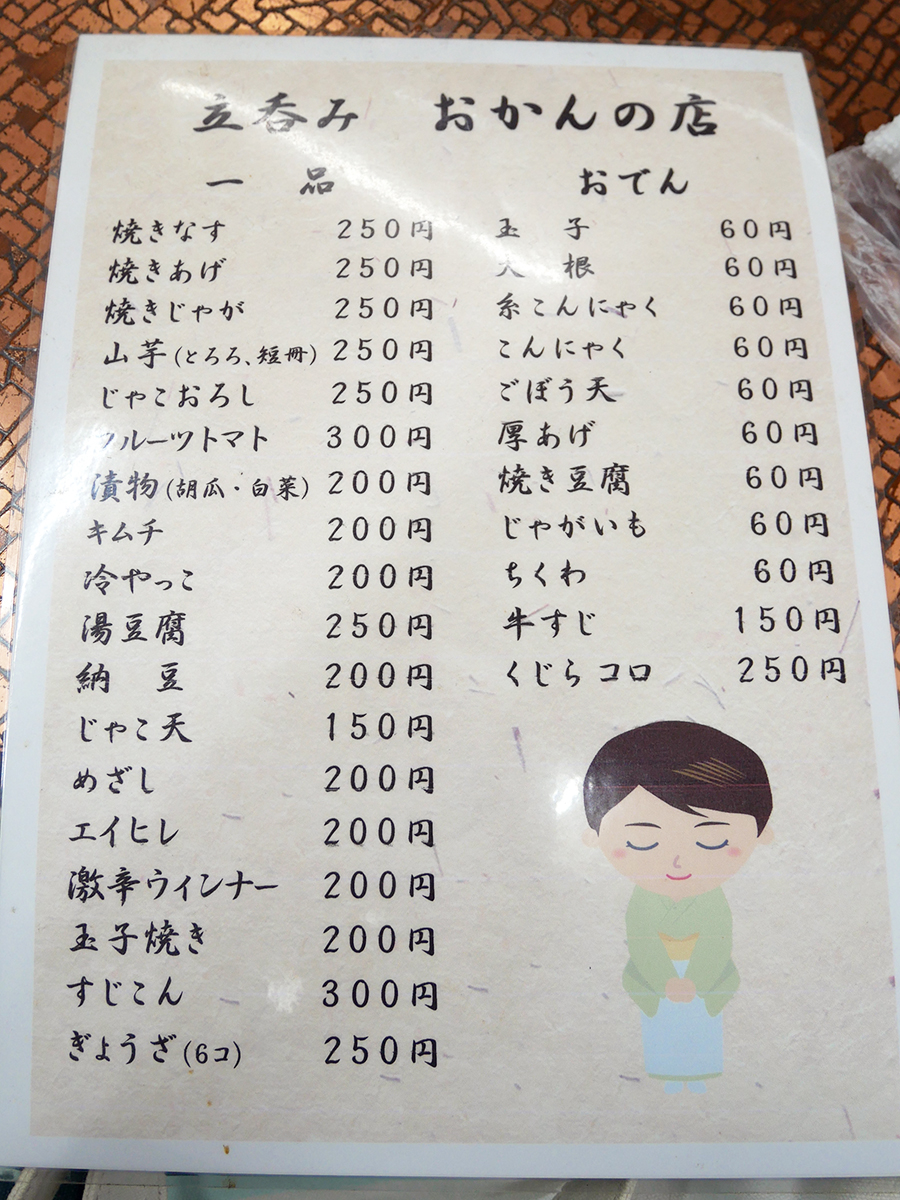 立呑み　おかんの店
一　品
焼きなす　250円
焼きあげ　250円
焼きじゃが　250円
山芋(とろろ、短冊)　250円
じゃこおろし　250円
フルーツトマト　300円
漬物(胡瓜・白菜)　200円
キムチ　200円
冷やっこ　200円
湯豆腐　250円
納　豆　200円
じゃこ天　150円
めざし　200円
エイヒレ　200円
激辛ウィンナー　200円
玉子焼き　200円
すじこん　300円
ぎょうざ(6コ)　250円
おでん
玉　子　60円
大　根　60円
糸こんにゃく　60円
こんにゃく　60円
ごぼう天　60円
厚あげ　60円
焼き豆腐　60円
じゃがいも　60円
ちくわ　60円
牛すじ　150円
くじらコロ　250円